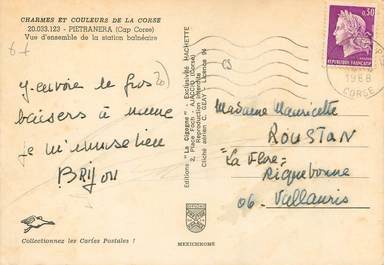 CHARMES ET COULEURS DE LA CORSE
20.033.123 - PIETRANERA (Cap Corse)
Vue d'ensemble de la station balnéaire
J'envoie de gros
baisers à mémé
je m'amuse bien
Editions "La Cigogne" - Exclusivités HACHETTE
2, Place Foch - AJACCIO (Corse)
Reproduction interdite
Cliché aérien C. GEAY - Licence 96
0,30
REPUBLIQUE FRANÇAISE
1968
CORSE
Madame Mauricette
ROUSTAN
"La Flore"
Riquebonne
06. Vallauris
Collectionnez les Cartes Postales !
MEXICHROME